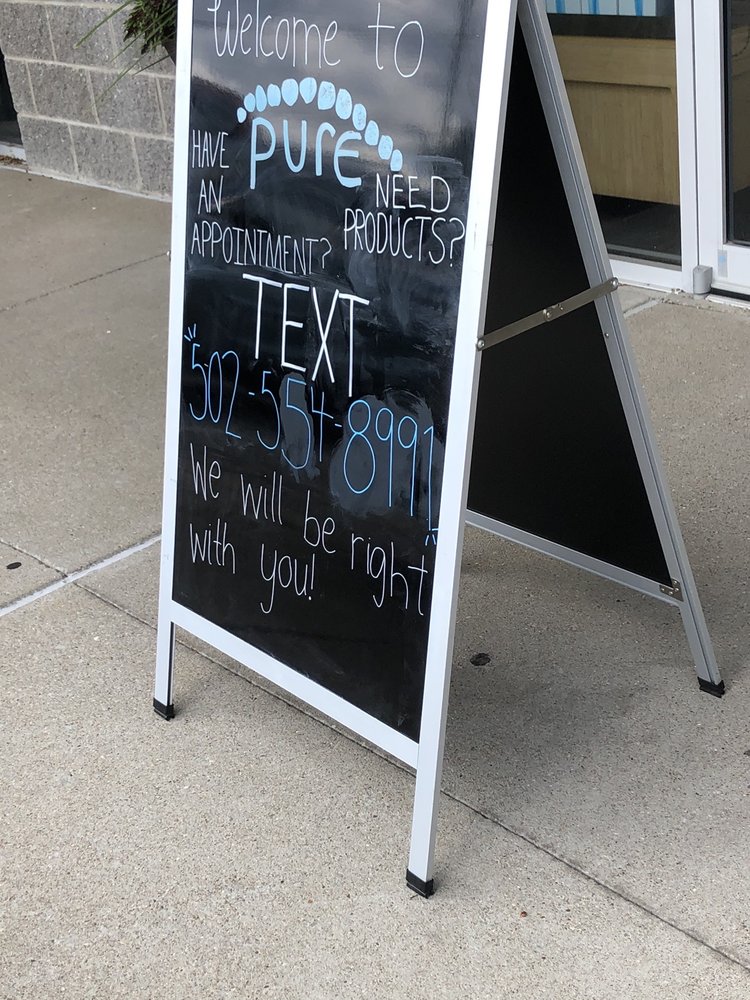 Welcome to
pure
HAVE
AN
APPOINTMENT?
NEED
PRODUCTS?
TEXT
502-554-8991
We will be right
with you!